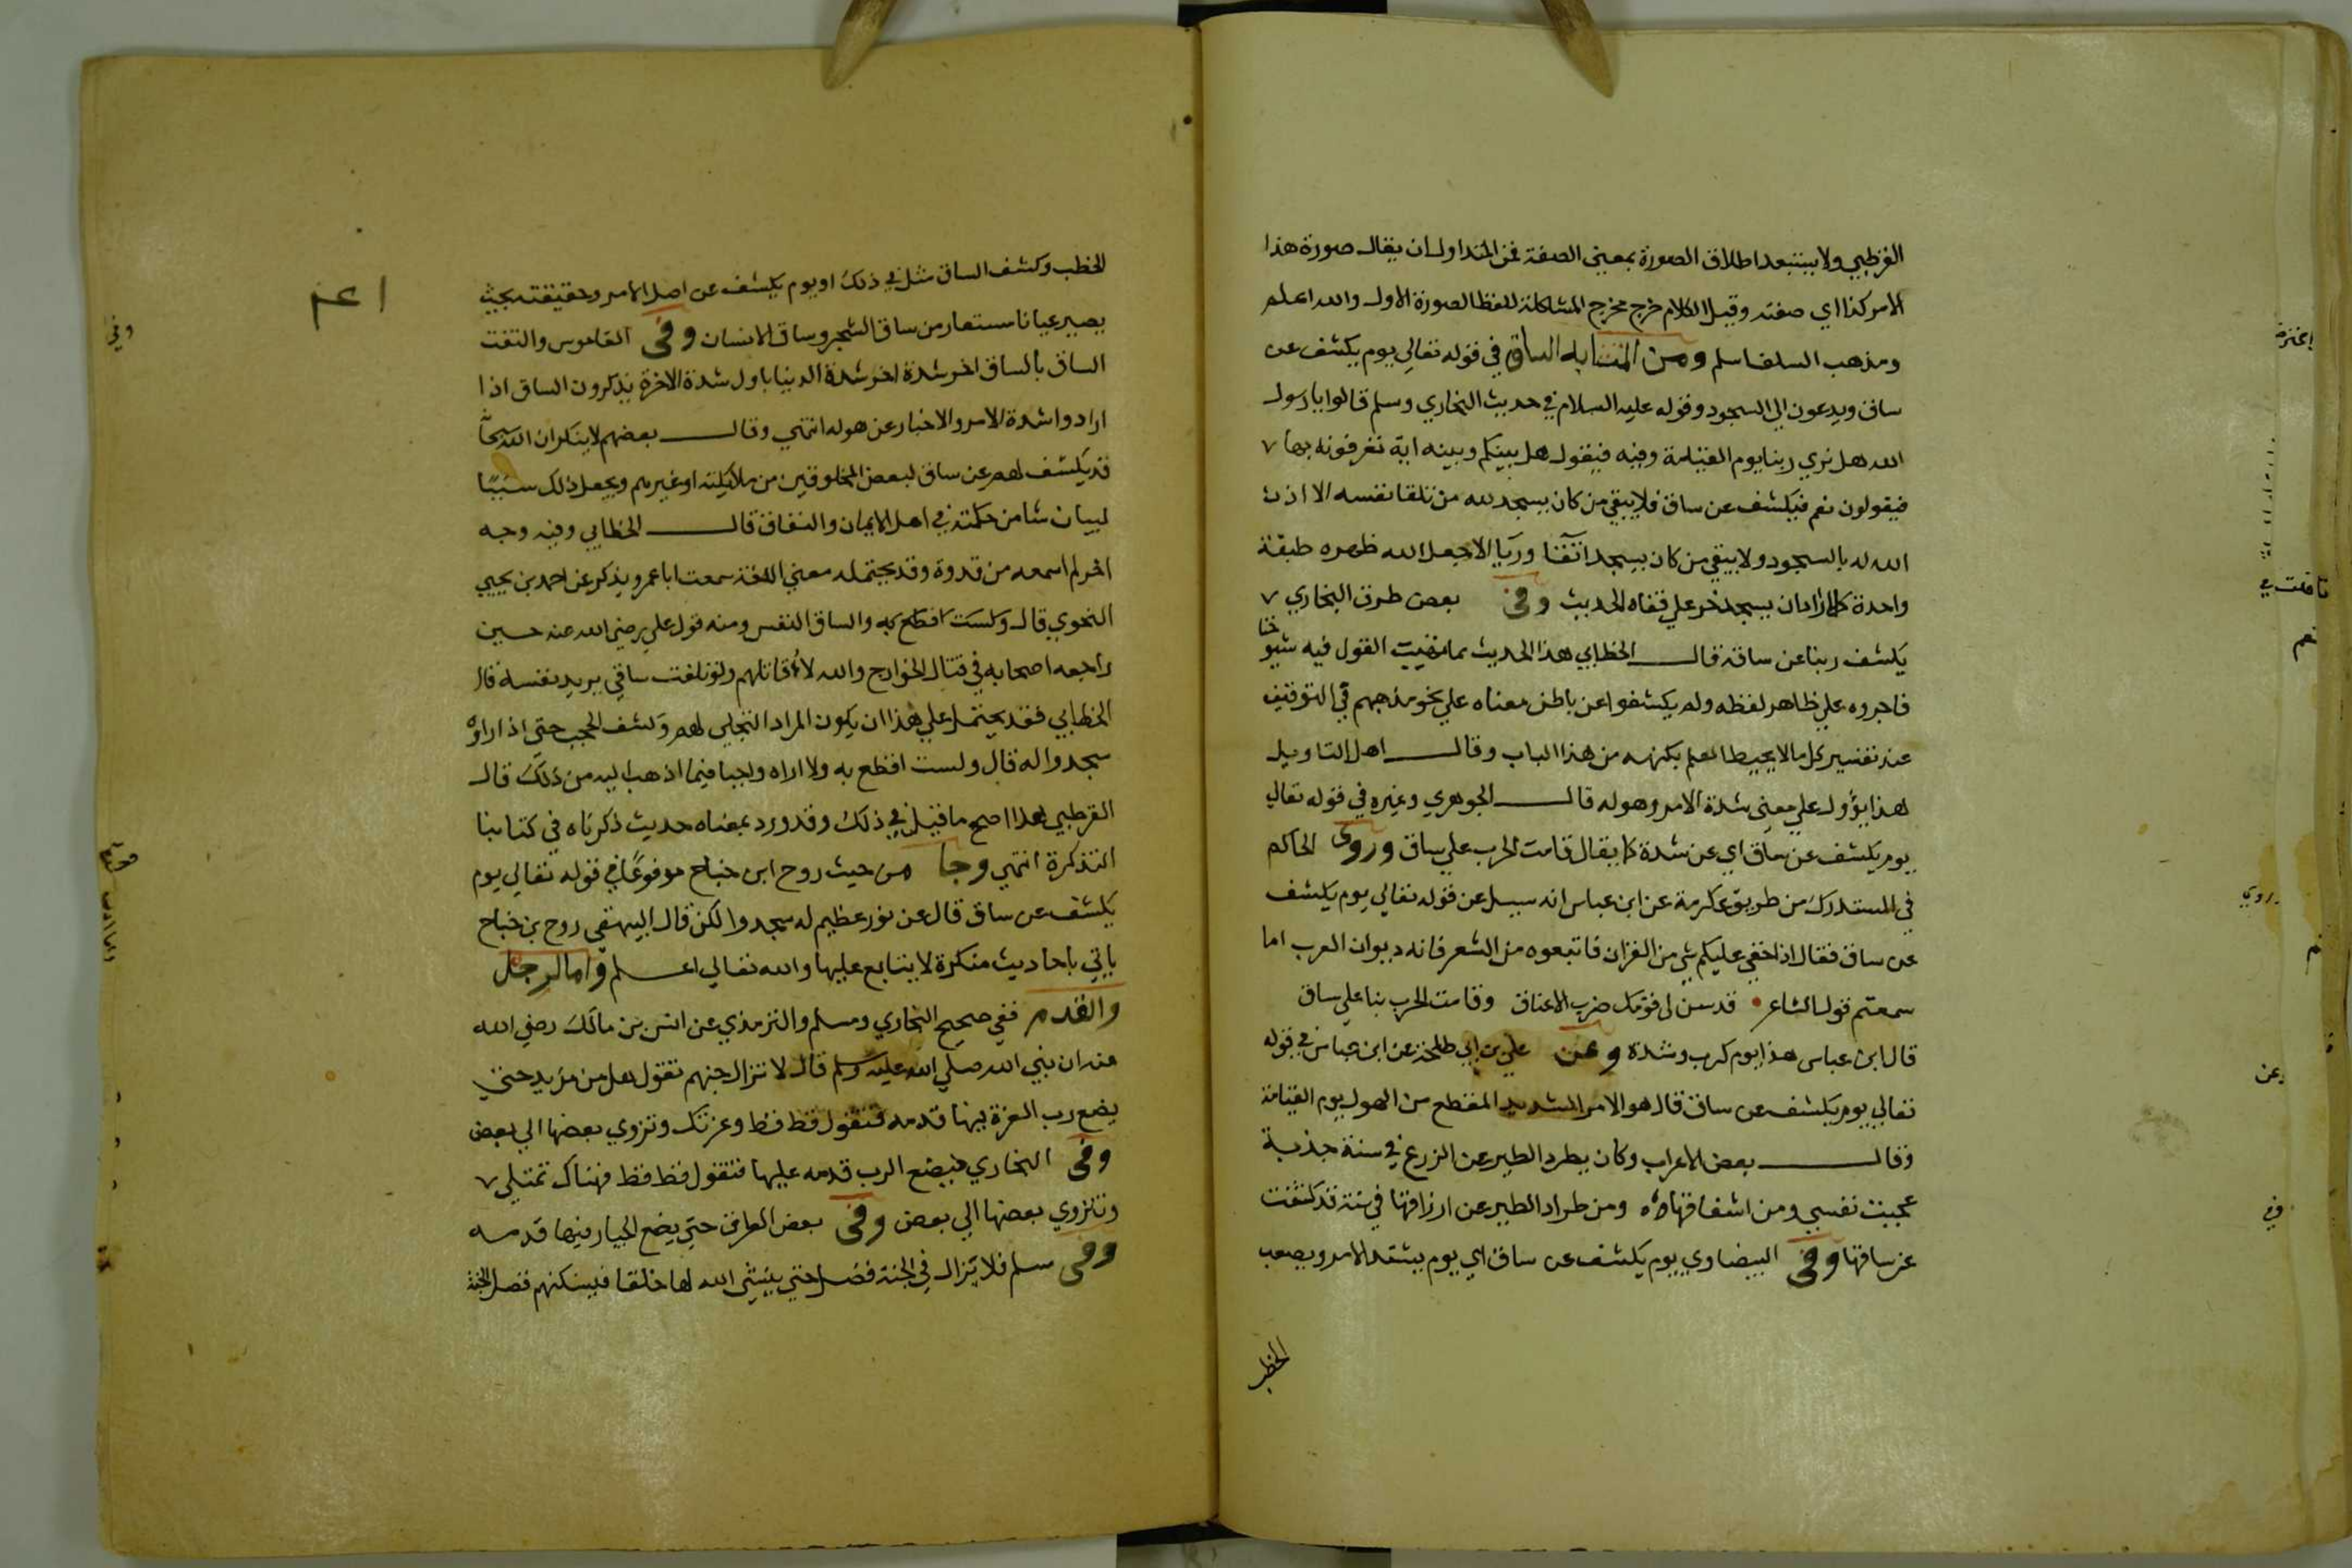 القرطبي ولا يستبعد اطلاق الصورة بمعني الصفة فمن المتداول ان يقال صورة هذا
الامر كذا اي صفته وقيل الكلام خرج مخرج المشاكلة للفظ الصورة الاول والله اعلم
ومذهب السلف اسلم ومن المتشابه الساق في قوله تعالي يوم يكشف عن
ساق ويدعون الي السجود وقوله عليه السلام في حديث البخاري ومسلم قالوا يا رسول
الله هل نري ربنا يوم القيامة وفيه فيقول هل بينكم وبينه اية تعرفونه بها
فيقولون نعم فيكشف عن ساق فلا يبقي من كان يسجد لله من تلقا نفسه الا اذن
الله له بالسجود ولا يبقي من كان يسجد اتقا وريا الا جعل الله ظهره طبقة
واحدة كلما اراد ان يسجد خر علي قفاه الحديث وفي بعض طرق البخاري
يكشف ربنا عن ساقه قال الخطابي هذا الحديث مما تهيب القول فيه شيوخنا
فاجروه علي ظاهر لفظه ولم يكشفوا عن باطن معناه علي نحو مذهبهم في التوقيف
عند تفسير كل ما لا يحيط العلم بكنهه من هذا الباب وقال اهل التاويل
هذا يؤول علي معني شدة الامر وهوله قال الجوهري وغيره في قوله تعالي
يوم يكشف عن ساق اي عن شدة كما يقال قامت الحرب علي ساق وروي الحاكم
في المستدرك من طريق عكرمة عن ابن عباس انه سيل عن قوله تعالي يوم يكشف
عن ساق فقال اذا خفي عليكم شي من القران فاتبعوه من الشعر فانه ديوان العرب اما
سمعتم قول الشاعر • قد سن لي قومك ضرب الاعناق وقامت الحرب بنا علي ساق
قال ابن عباس هذا يوم كرب وشدة وعن علي بن ابي طلحة عن ابن عباس في قوله
تعالي يوم يكشف عن ساق قال هو الامر الشديد المفظع من الهول يوم القيامة
وقال بعض الاعراب وكان يطرد الطير عن الزرع في سنة جذبة
عجبت نفسي ومن اشفاقها ومن طراد الطير عن ارزاقها في سنة قد كشفت
عن ساقها وفي البيضاوي يوم يكشف عن ساق اي يوم يشتد الامر ويصعب
الخطب
للخطب وكشف الساق مثل في ذلك او يوم يكشف عن اصل الامر وحقيقته بحيث
يصير عيانا مستعار من ساق الشجر وساق الانسان وفي القاموس والتفت
الساق بالساق اخر شدة اخر شدة الدنيا باول شدة الاخرة يذكرون الساق اذا
ارادوا شدة الامر والاخبار عن هوله انتهي وقال بعضهم لا ينكر ان الله سبحانه
قد يكشف لهم عن ساق لبعض المخلوقين من ملائكته او غيرهم ويجعل ذلك سببا
لبيان شا من حكمته في اهل الايمان والنفاق قال الخطابي وفيه وجه
اخر لم اسمعه من قدوة وقد يحتمله معني اللغة سمعت ابا عمر ويذكر عن احمد بن يحيي
النحوي قال ولست اقطع به والساق النفس ومنه قول علي رضي الله عنه حين
راجعه اصحابه في قتال الخوارج والله لاقاتلهم ولو تلفت ساقي يريد نفسه قال
الخطابي فقد يحتمل علي هذا ان يكون المراد التجلي لهم وكشف الحجب حتي اذا راوه
سجدوا له قال ولست اقطع به ولا اراه واجبا فيما اذهب اليه من ذلك قال
القرطبي هذا اصح ما قيل في ذلك وقد ورد بمعناه حديث ذكرناه في كتابنا
التذكرة انتهي وجا من حيث روح ابن جناح موفوعا في قوله تعالي يوم
يكشف عن ساق قال عن نور عظيم له سجدوا لكن قال البيهقي روح بن جناح
ياتي باحاديث منكرة لا يتابع عليها والله تعالي اعلم واما الرجل
والقدم ففي صحيح البخاري ومسلم والترمذي عن انس بن مالك رضي الله
عنه ان نبي الله صلي الله عليه وسلم قال لا تزال جهنم تقول هل من مزيد حتي
يضع رب العزة فيها قدمه فتقول قط قط وعزتك وتزوي بعضها الي بعض
وفي البخاري فيضع الرب قدمه عليها فتقول قط قط فهناك تمتلي
وتنزوي بعضها الي بعض وفي بعض الطرق حتي يضع الجبار فيها قدمه
وفي مسلم فلا تزال في الجنة فضل حتي ينشي الله لها خلقا فيسكنهم فضل الجنة